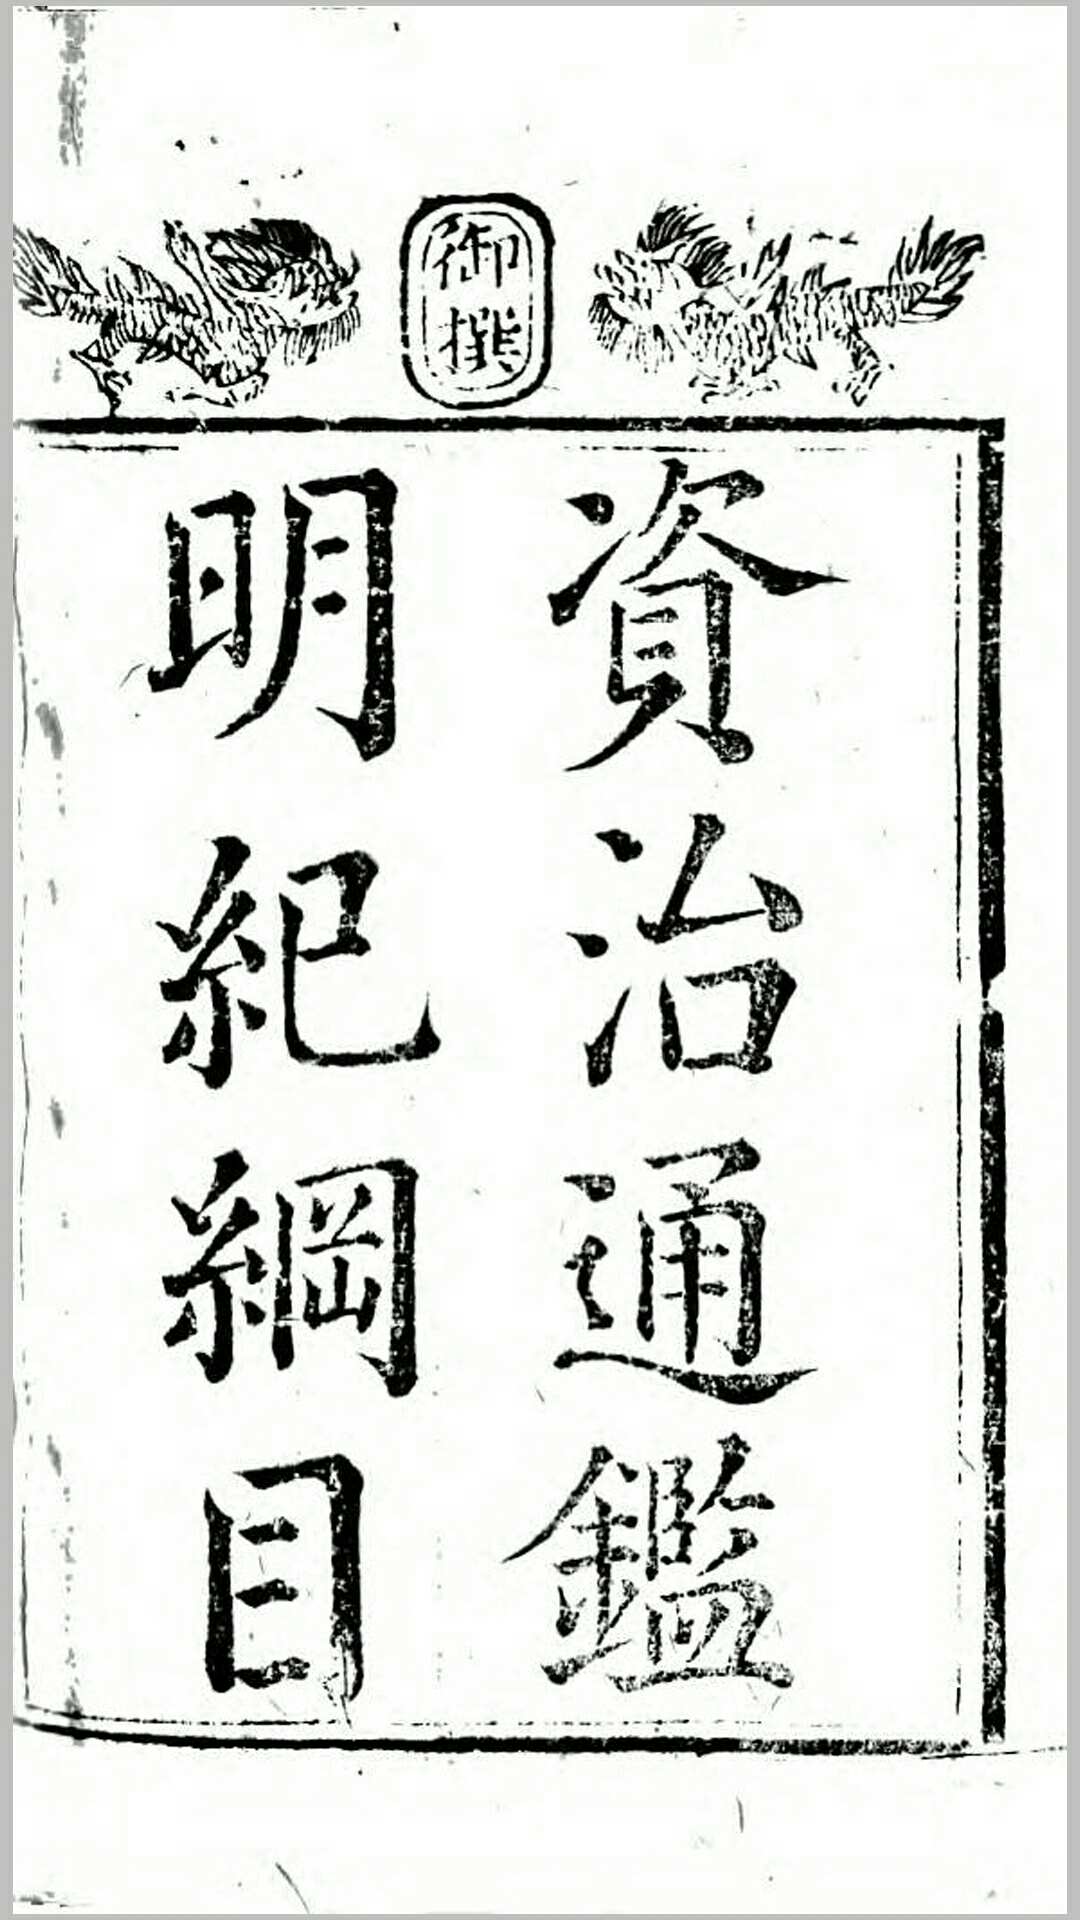 御撰
資治通鑑
明紀綱目